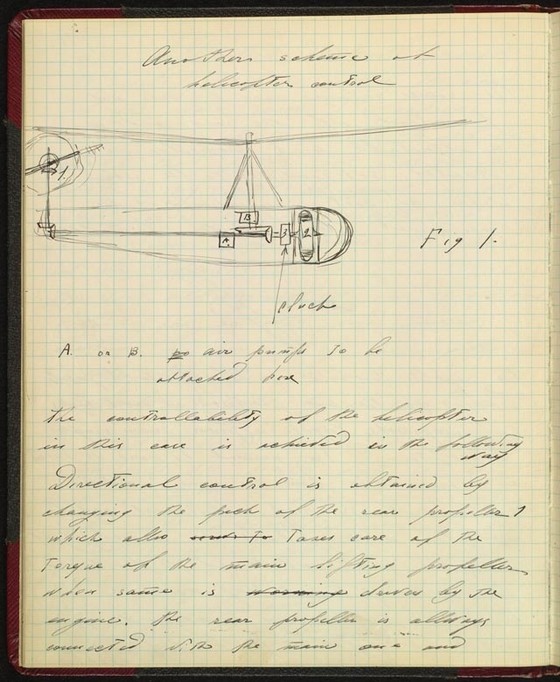 Another scheme of
helicopter control
1.
B
A
3
2
Fig 1.
pluck
A. or B. po air pumps to be
attached here
The controllability of the helicopter
in this case is achieted in the following
way
Directional control is obtained by
changing the pich of the rear propeller 1
which allso takes care of the
torque of the main lifting propeller
when same is driven by the
engine. The rear propeller is allways
connected with the main one and